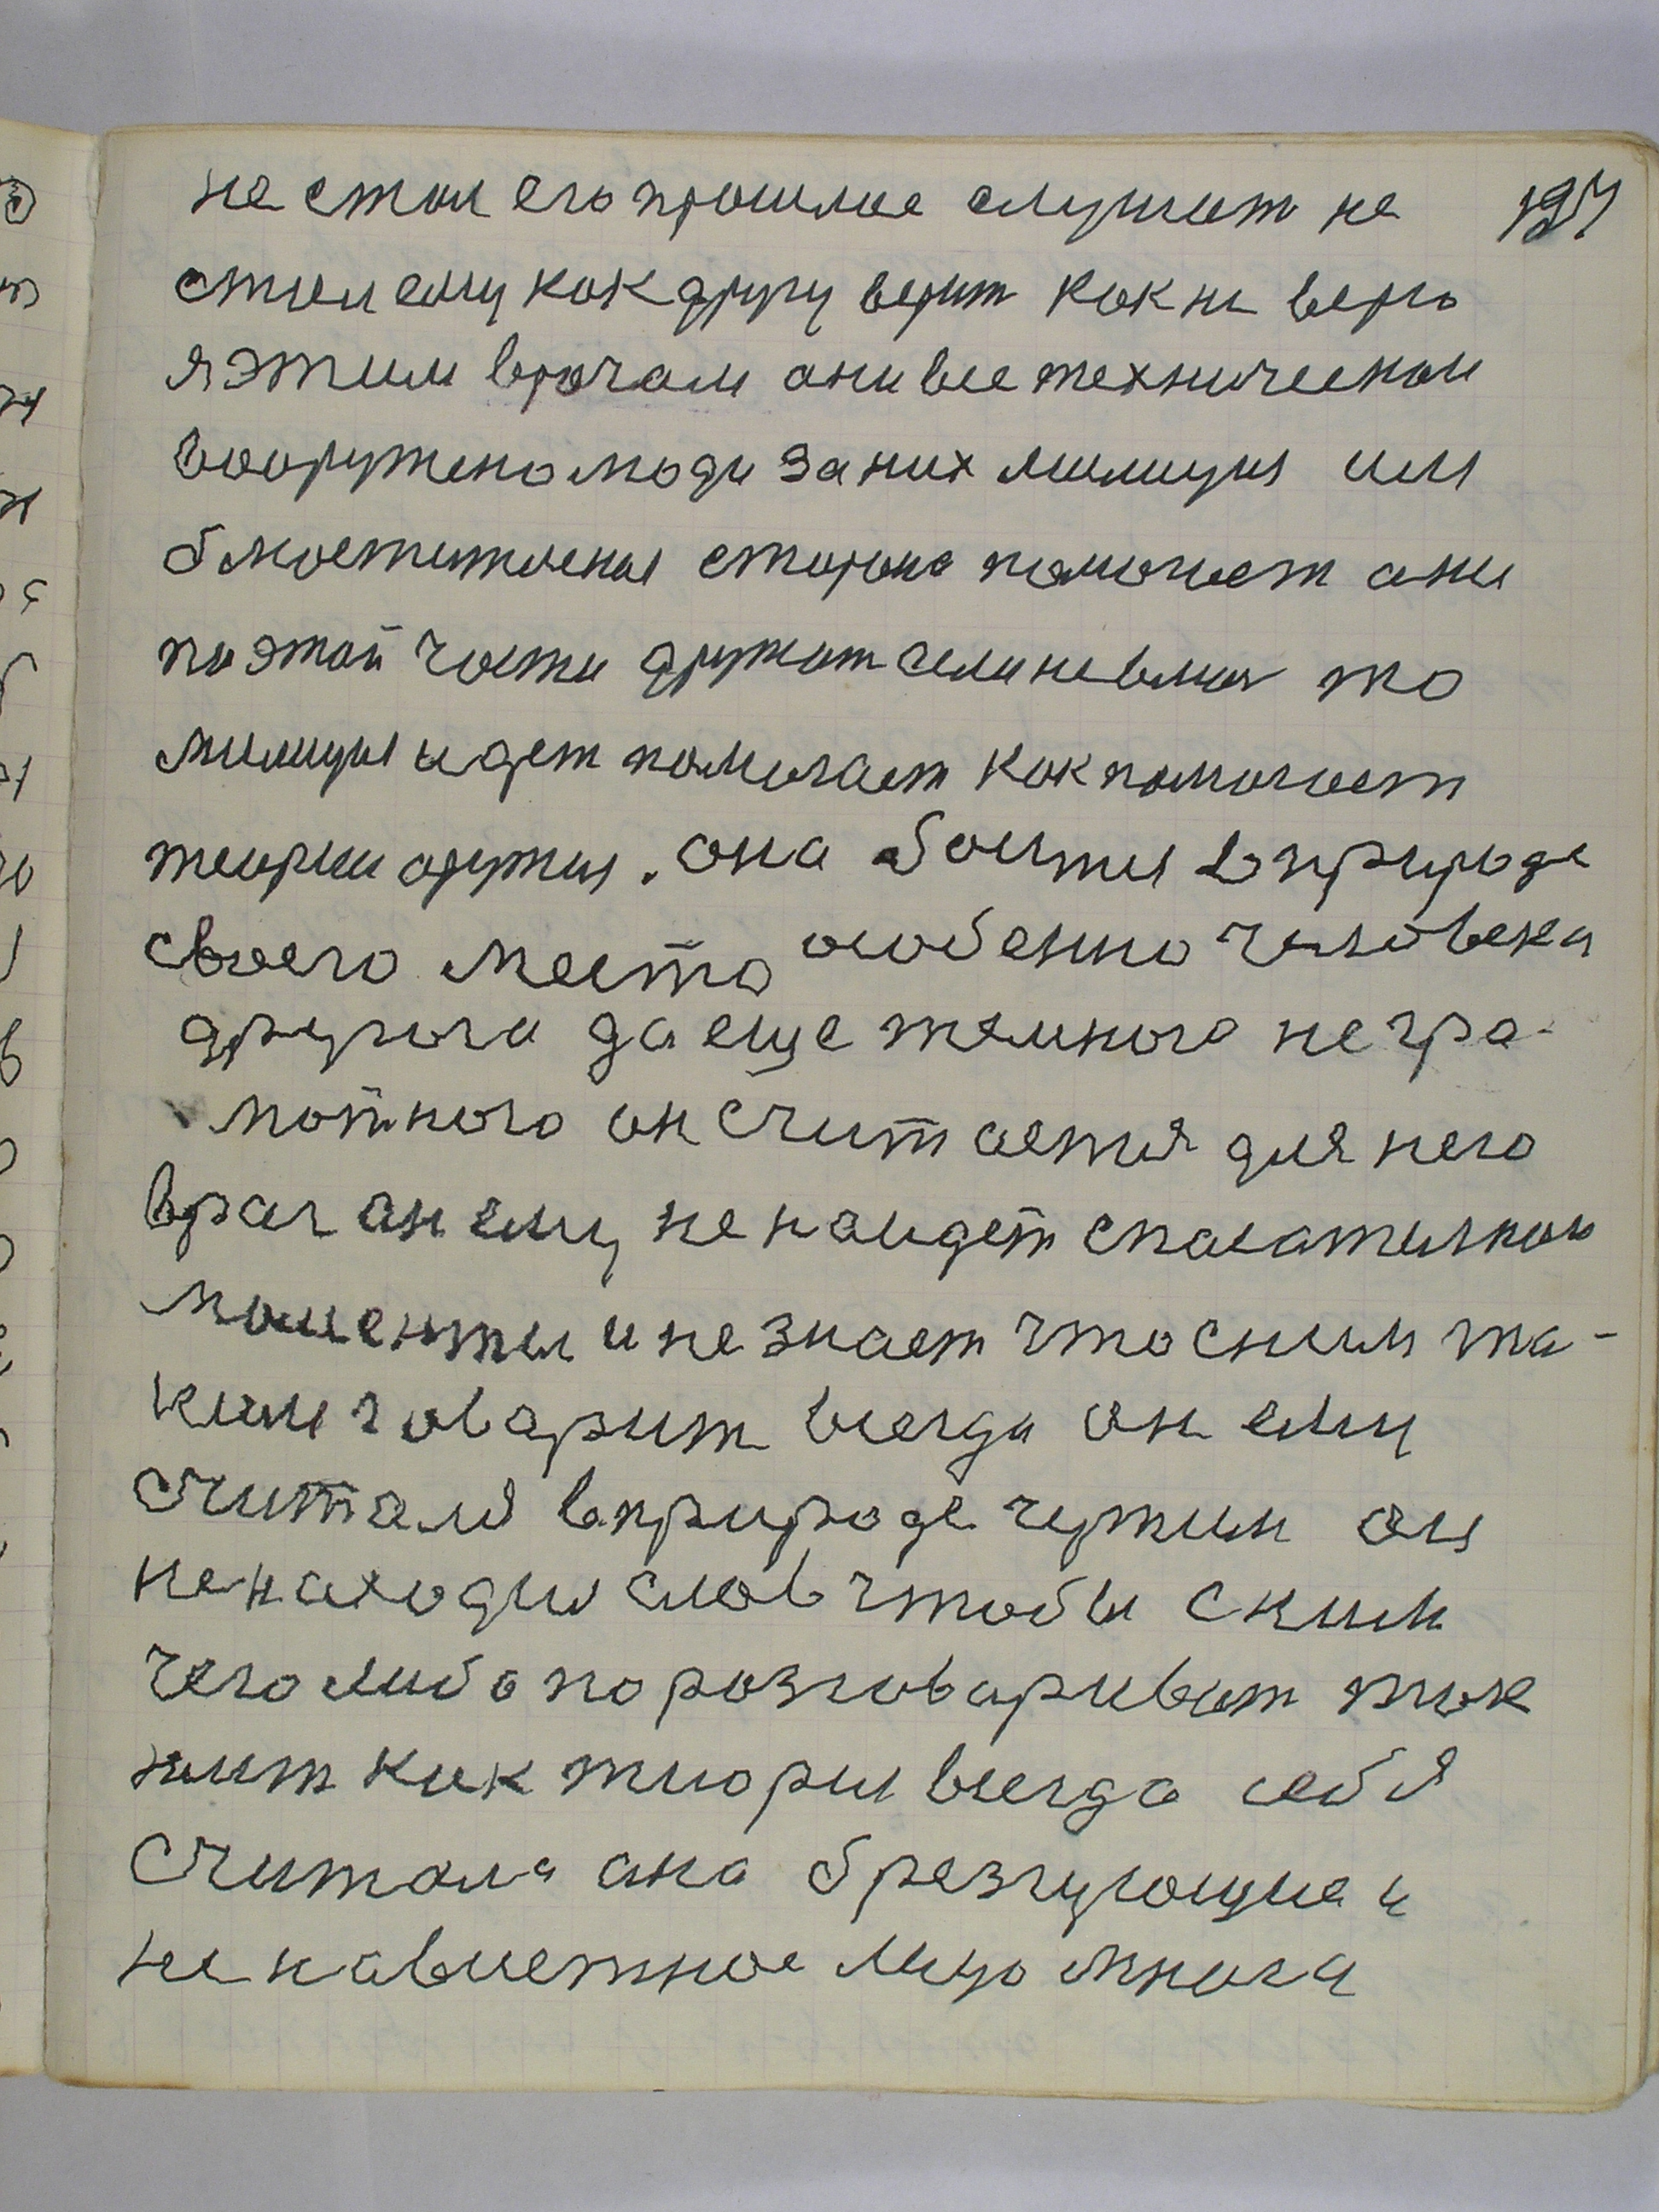 не стал его прошлое слушат не 197
стал ему как другу верит как ни верю
я этим врачам они все технически
вооружено люди за них милиция им
блюстителная сторона помогает они
по этой части дружат если не влия то
милиция идет помогает как помогает
теории оружия. она боится в природе
своего места особенно человека
другога да еще темного негра-
мотного он считается для него
враг он ему не найдет спасателною
моменты и не знает что с ним та-
ким говарит всегда он ему
считался в природе чужим он
не находил слов чтобы с ким
чего либо поразговариват так
наит как тиория всегда себя
считала она брезгующие и
не навистное лицо многа